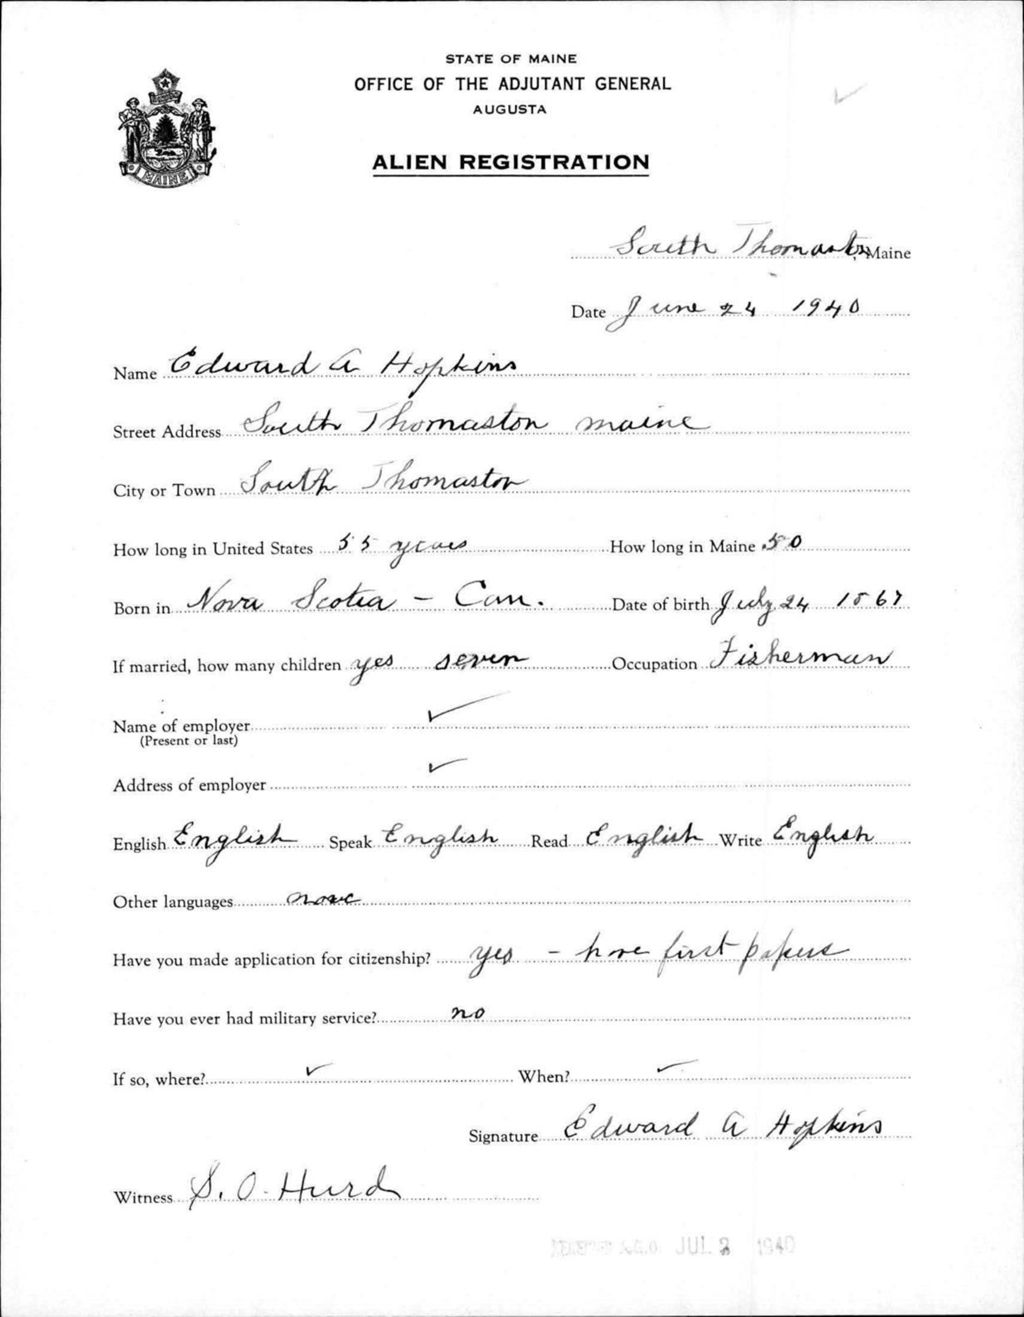 STATE OF MAINE
OFFICE OF THE ADJUTANT GENERAL
AUGUSTA
MAINE
ALIEN REGISTRATION
South Thomaston, Maine
Date June 24 1940
Name Edward A Hopkins
Street Address South Thomaston maine
City or Town South Thomaston
How long in United States 55 years How long in Maine 50
Born in Nova Scotia - Can. Date of birth July 24 1867
If married, how many children yes seven Occupation Fisherman
Name of employer ✓
(Present or last)
Address of employer ✓
English English Speak English Read English Write English
Other languages none
Have you made application for citizenship? yes - have first papers
Have you ever had military service? no
If so, where? ✓ When? ✓
Signature Edward A Hopkins
Witness S. O. Hurd
A.G.O JUL 2 1940